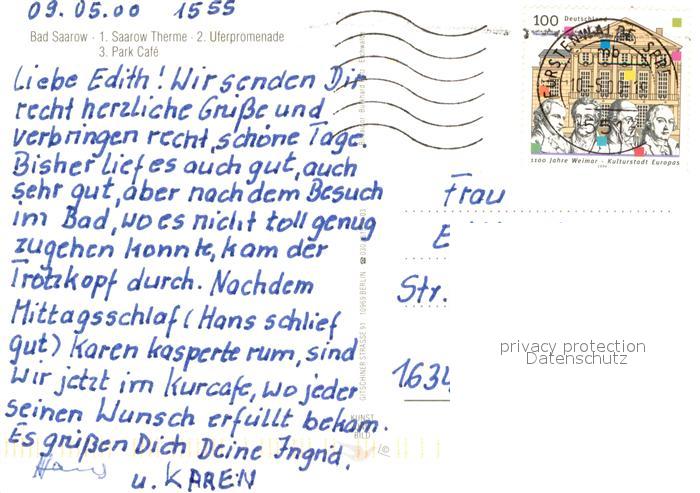 09.05.00 1555
Bad Saarow · 1. Saarow Therme · 2. Uferpromenade
3. Park Café
Liebe Edith! Wir senden Dir
recht herzliche Grüße und
verbringen recht schöne Tage.
Bisher lief es auch gut, auch
sehr gut, aber nach dem Besuch
im Bad, wo es nicht toll genug
zugehen konnte, kam der
Trotzkopf durch. Nachdem
Mittagsschlaf (Hans schlief
gut) Karen kasperte rum, sind
wir jetzt im Kurcafe, wo jeder
seinen Wunsch erfüllt bekam.
Es grüßen Dich Deine Ingrid,
Hans
u. KAREN
GITSCHINER STRASSE 91 · 10969 BERLIN
KUNST
BILD
100 Deutschland
FÜRSTENWALDE, SPREE
1100 Jahre Weimar · Kulturstadt Europas
1999
Frau
E
Str.
1634
privacy protection
Datenschutz